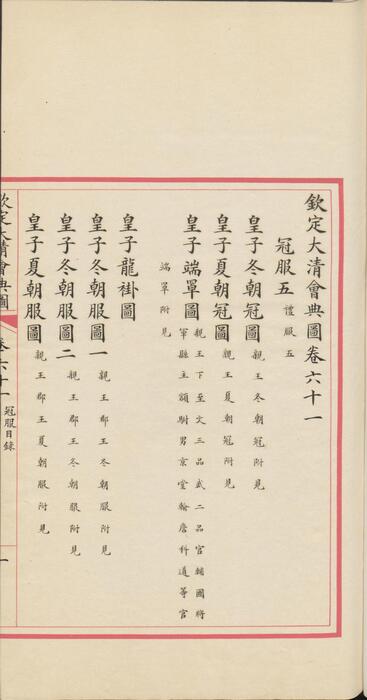 欽定大清會典圖卷六十一
冠服五 禮服五
皇子冬朝冠圖 親王冬朝冠附見
皇子夏朝冠圖 親王夏朝冠附見
皇子端罩圖 親王下至文三品武二品官輔國將
軍縣主額駙男京堂翰詹科道等官
端罩附見
皇子龍褂圖
皇子冬朝服圖一 親王郡王冬朝服附見
皇子冬朝服圖二 親王郡王冬朝服附見
皇子夏朝服圖 親王郡王夏朝服附見
欽定大清會典圖 卷六十一 冠服目錄 一